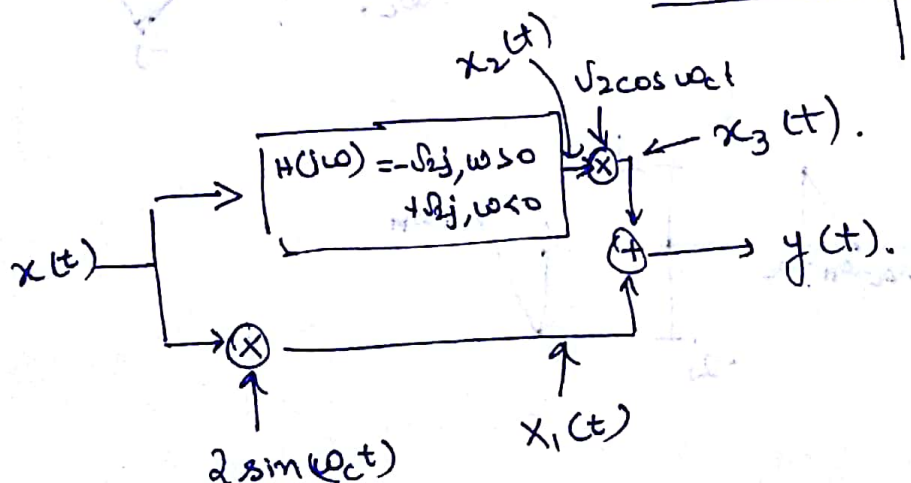 x₂(t)
√2cos ω_ct
x₃(t).
H(jω) = -√2j, ω>0
+√2j, ω<0
x(t)
y(t).
2 sin(ω_ct)
X₁(t)